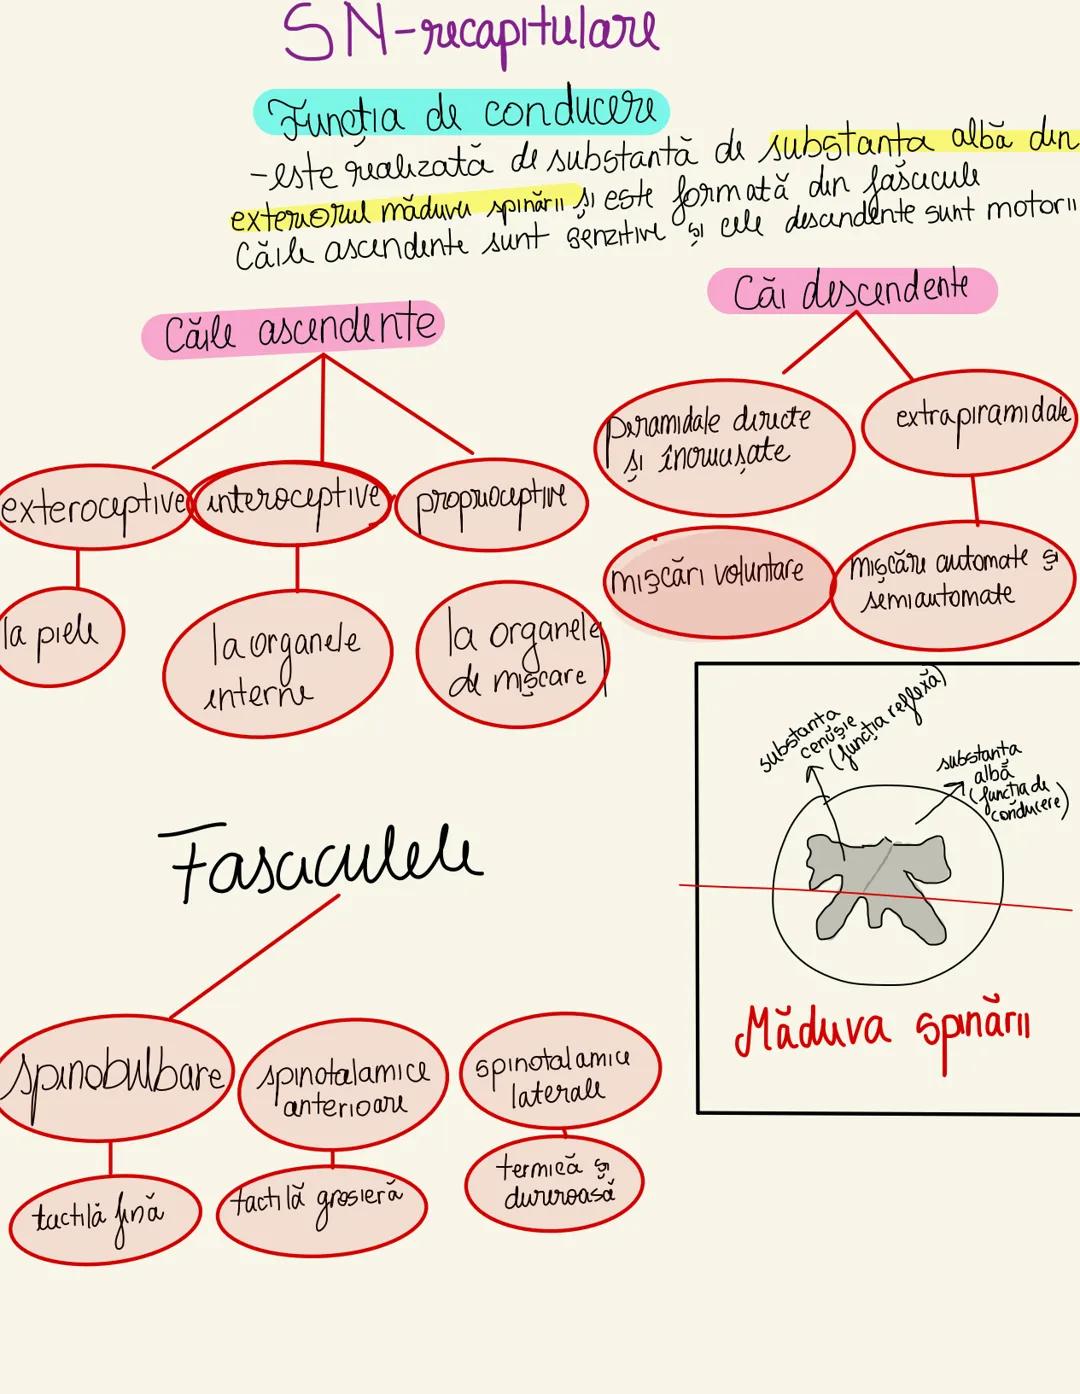 SN-recapitulare
Funcția de conducere
-este realizată de substantă de substanța albă din
exteriorul măduvei spinării și este formată din fascicule
Căile ascendente sunt senzitive și cele descendente sunt motorii
Căile ascendente
Căi descendente
exteroceptive
interoceptive
proprioceptive
la piele
la organele
interne
la organele
de mișcare
piramidale directe
și încrucișate
extrapiramidale
mișcări voluntare
mișcări automate și
semiautomate
substanta
cenușie
(funcția reflexă)
substanta
albă
(functia de
conducere)
Măduva spinării
Fasciculele
spinobulbare
spinotalamice
anterioare
spinotalamice
laterale
tactilă fină
tactilă grosieră
termică și
dureroasă